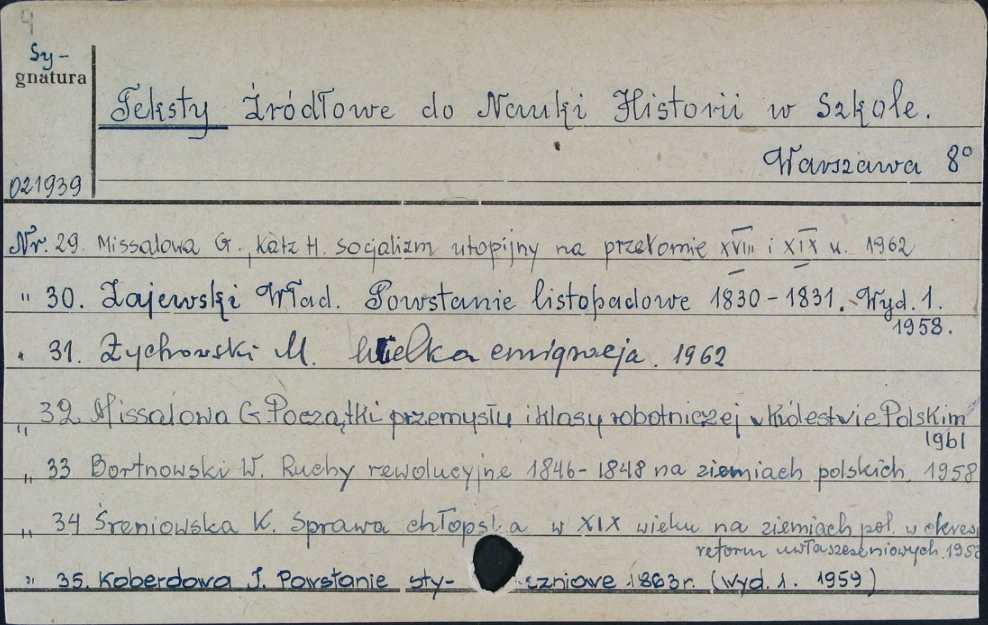 4
Sy-
gnatura
Teksty Źródłowe do Nauki Historii w Szkole.
Warszawa 8°
021939
Nr. 29. Missalowa G., Katz H. Socjalizm utopijny na przełomie XVIII i XIX w. 1962
" 30. Zajewski Wład. Powstanie listopadowe 1830-1831. Wyd. 1.
1958.
" 31. Żychowski M. Wielka emigracja. 1962
" 32 Missalowa G. Początki przemysłu i klasy robotniczej w Królestwie Polskim
1961
" 33 Bortnowski W. Ruchy rewolucyjne 1846-1848 na ziemiach polskich. 1958
" 34 Śreniowska K. Sprawa chłopska w XIX wieku na ziemiach pol. w okresie
reform uwłaszczeniowych.
" 35. Koberdowa I. Powstanie sty- czniowe 1863r. (wyd. 1. 1959)